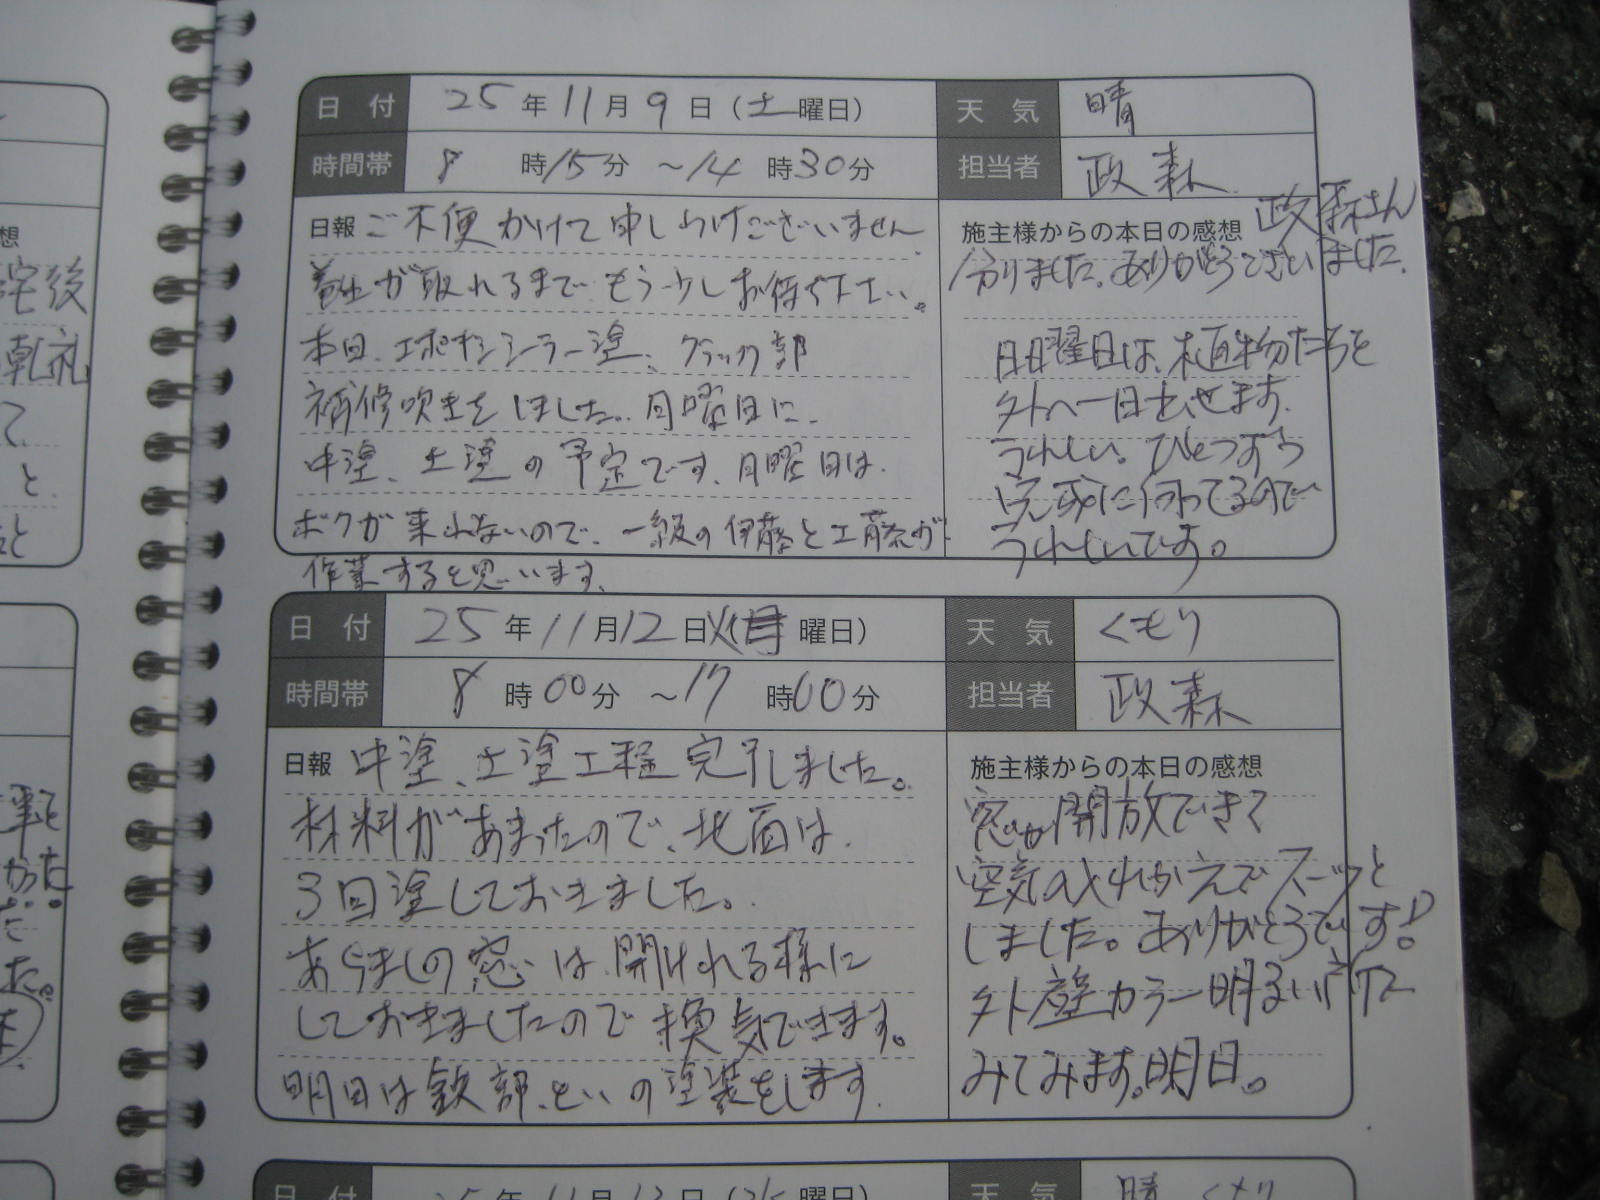 日付 25年11月9日(土曜日) 天気 晴
時間帯 8時15分～14時30分 担当者 政森
日報 ご不便かけて申しわけございません
養生が取れるまで、もう少しお待ち下さい。
本日、エポキシシーラー塗、クラック部
補修吹きをしました。月曜日に
中塗、上塗の予定です。月曜日は
ボクが来れないので、一級の伊藤と工藤が
作業すると思います。
施主様からの本日の感想 政森さん
分りました。ありがとうございました。
日曜日は、植物たちを
外へ一日出せます。
うれしい。ひとつずつ
完成に向ってるので
うれしいです。
日付 25年11月12日(火曜日) 天気 くもり
時間帯 8時00分～17時00分 担当者 政森
日報 中塗、上塗工程完了しました。
材料があまったので、地面は
3回塗しておきました。
あらましの窓は、開けれる様に
しておきましたので換気できます。
明日は鉄部、といの塗装をします。
施主様からの本日の感想
窓が開放できて
空気の入れかえでスーッと
しました。ありがとうです!
外壁カラー明るい
みてみます。明日。
日付 25年11月13日(水曜日) 天気 晴 くもり
想
宅後